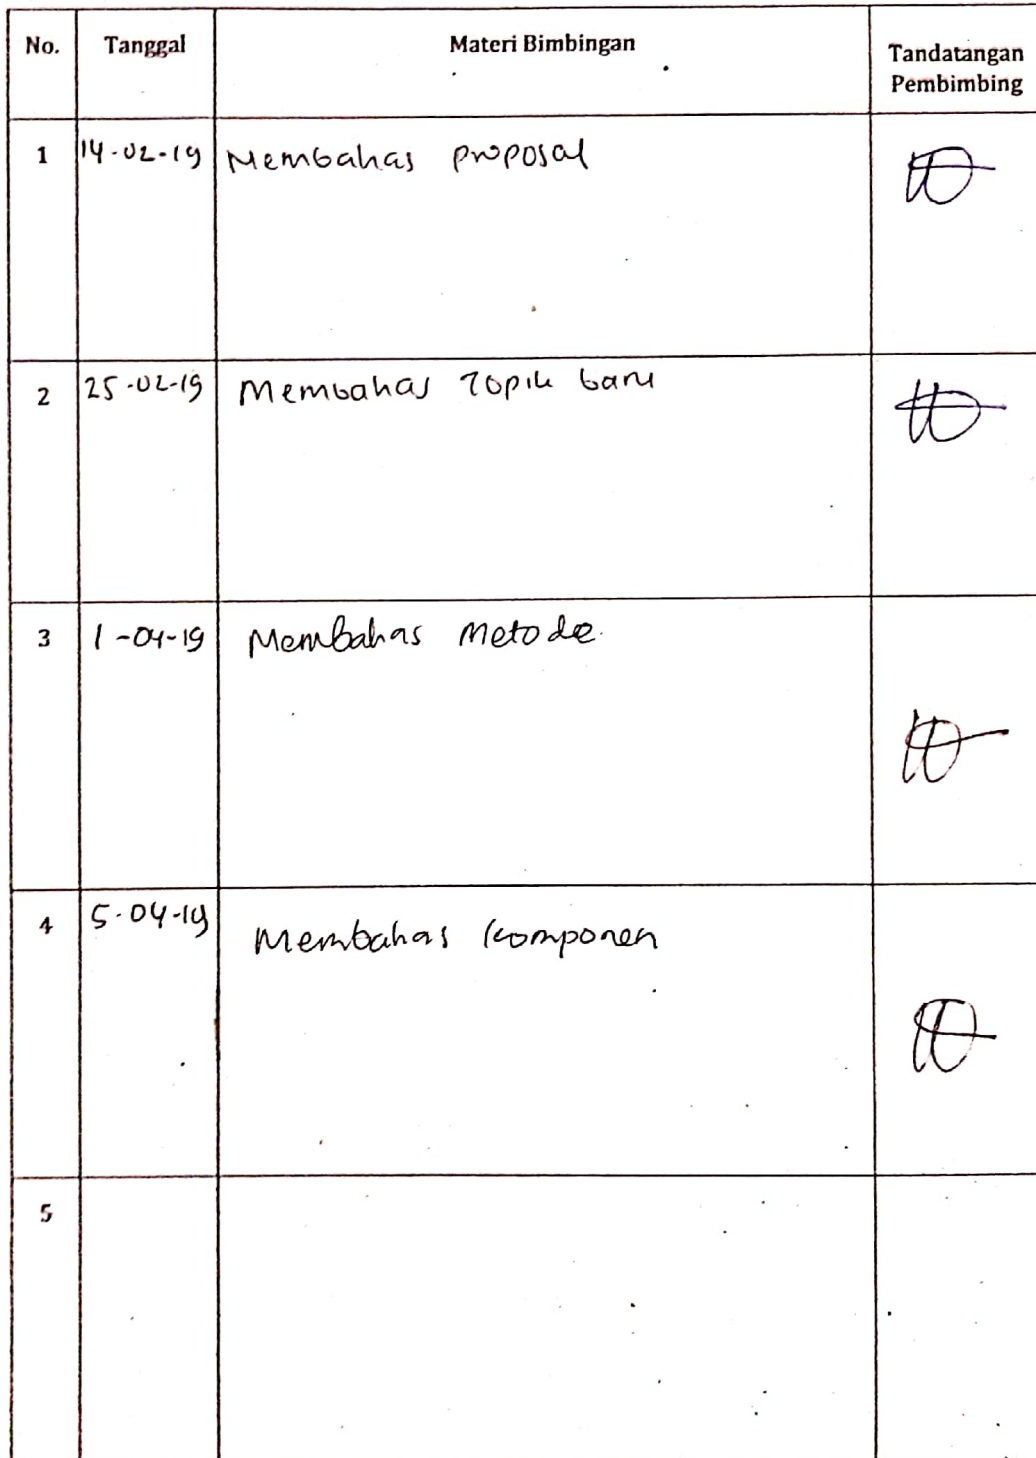 No. Tanggal Materi Bimbingan Tandatangan
Pembimbing
1 14-02-19 Membahas proposal
2 25-02-19 Membahas Topik baru
3 1-04-19 Membahas Metode.
4 5-04-19 Membahas komponen
5